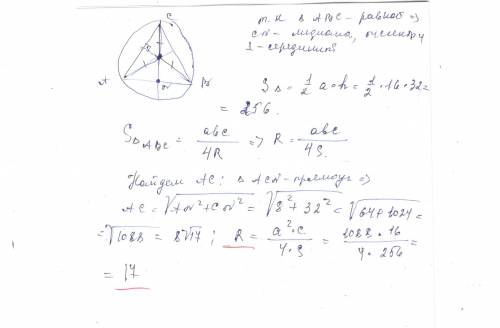 C
A
B
N
т. к Δ ABC - равноб =>
CN - медиана,
1 - середина
S Δ = 1/2 a · h = 1/2 · 16 · 32 =
= 256.
S Δ ABC = abc / 4R => R = abc / 4S.
Найдем AC: Δ ACN - прямоуг =>
AC = √(AN² + CN²) = √(8² + 32²) = √(64 + 1024) =
= √1088 = 8√17 ; R = a² · c / 4 · S = 1088 · 16 / 4 · 256 =
= 17